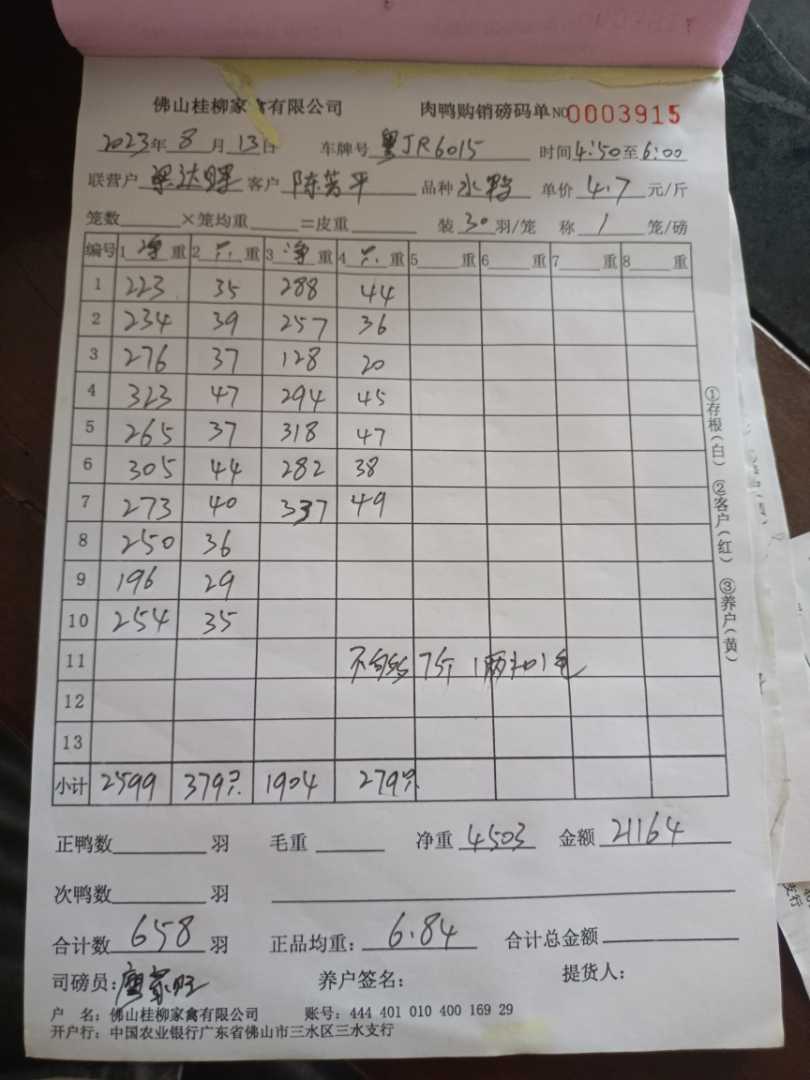 佛山桂柳家禽有限公司 肉鸭购销磅码单 NO 0003915
2023年 8 月 13日 车牌号 粤JR6015 时间 4:50 至 6:00
联营户 梁达 客户 陈芳平 品种 水鸭 单价 4.7 元/斤
笼数 ×笼均重 =皮重 装 30 羽/笼 称 1 笼/磅
编号 1 净 重 2 只 重 3 净 重 4 只 重 5 重 6 重 7 重 8 重
1 223 35 288 44
2 234 39 257 36
3 276 37 128 20
4 323 47 294 45
5 265 37 318 47
6 305 44 282 38
7 273 40 337 49
8 250 36
9 196 29
10 254 35
11 不够 7斤 1两扣1毛
12
13
小计 2599 379只 1904 279只
正鸭数 羽 毛重 净重 4503 金额 21164
次鸭数 羽
合计数 658 羽 正品均重: 6.84 合计总金额
司磅员: 养户签名: 提货人:
户 名: 佛山桂柳家禽有限公司 账号: 444 401 010 400 169 29
开户行: 中国农业银行广东省佛山市三水区三水支行
①存根(白) ②客户(红) ③养户(黄)